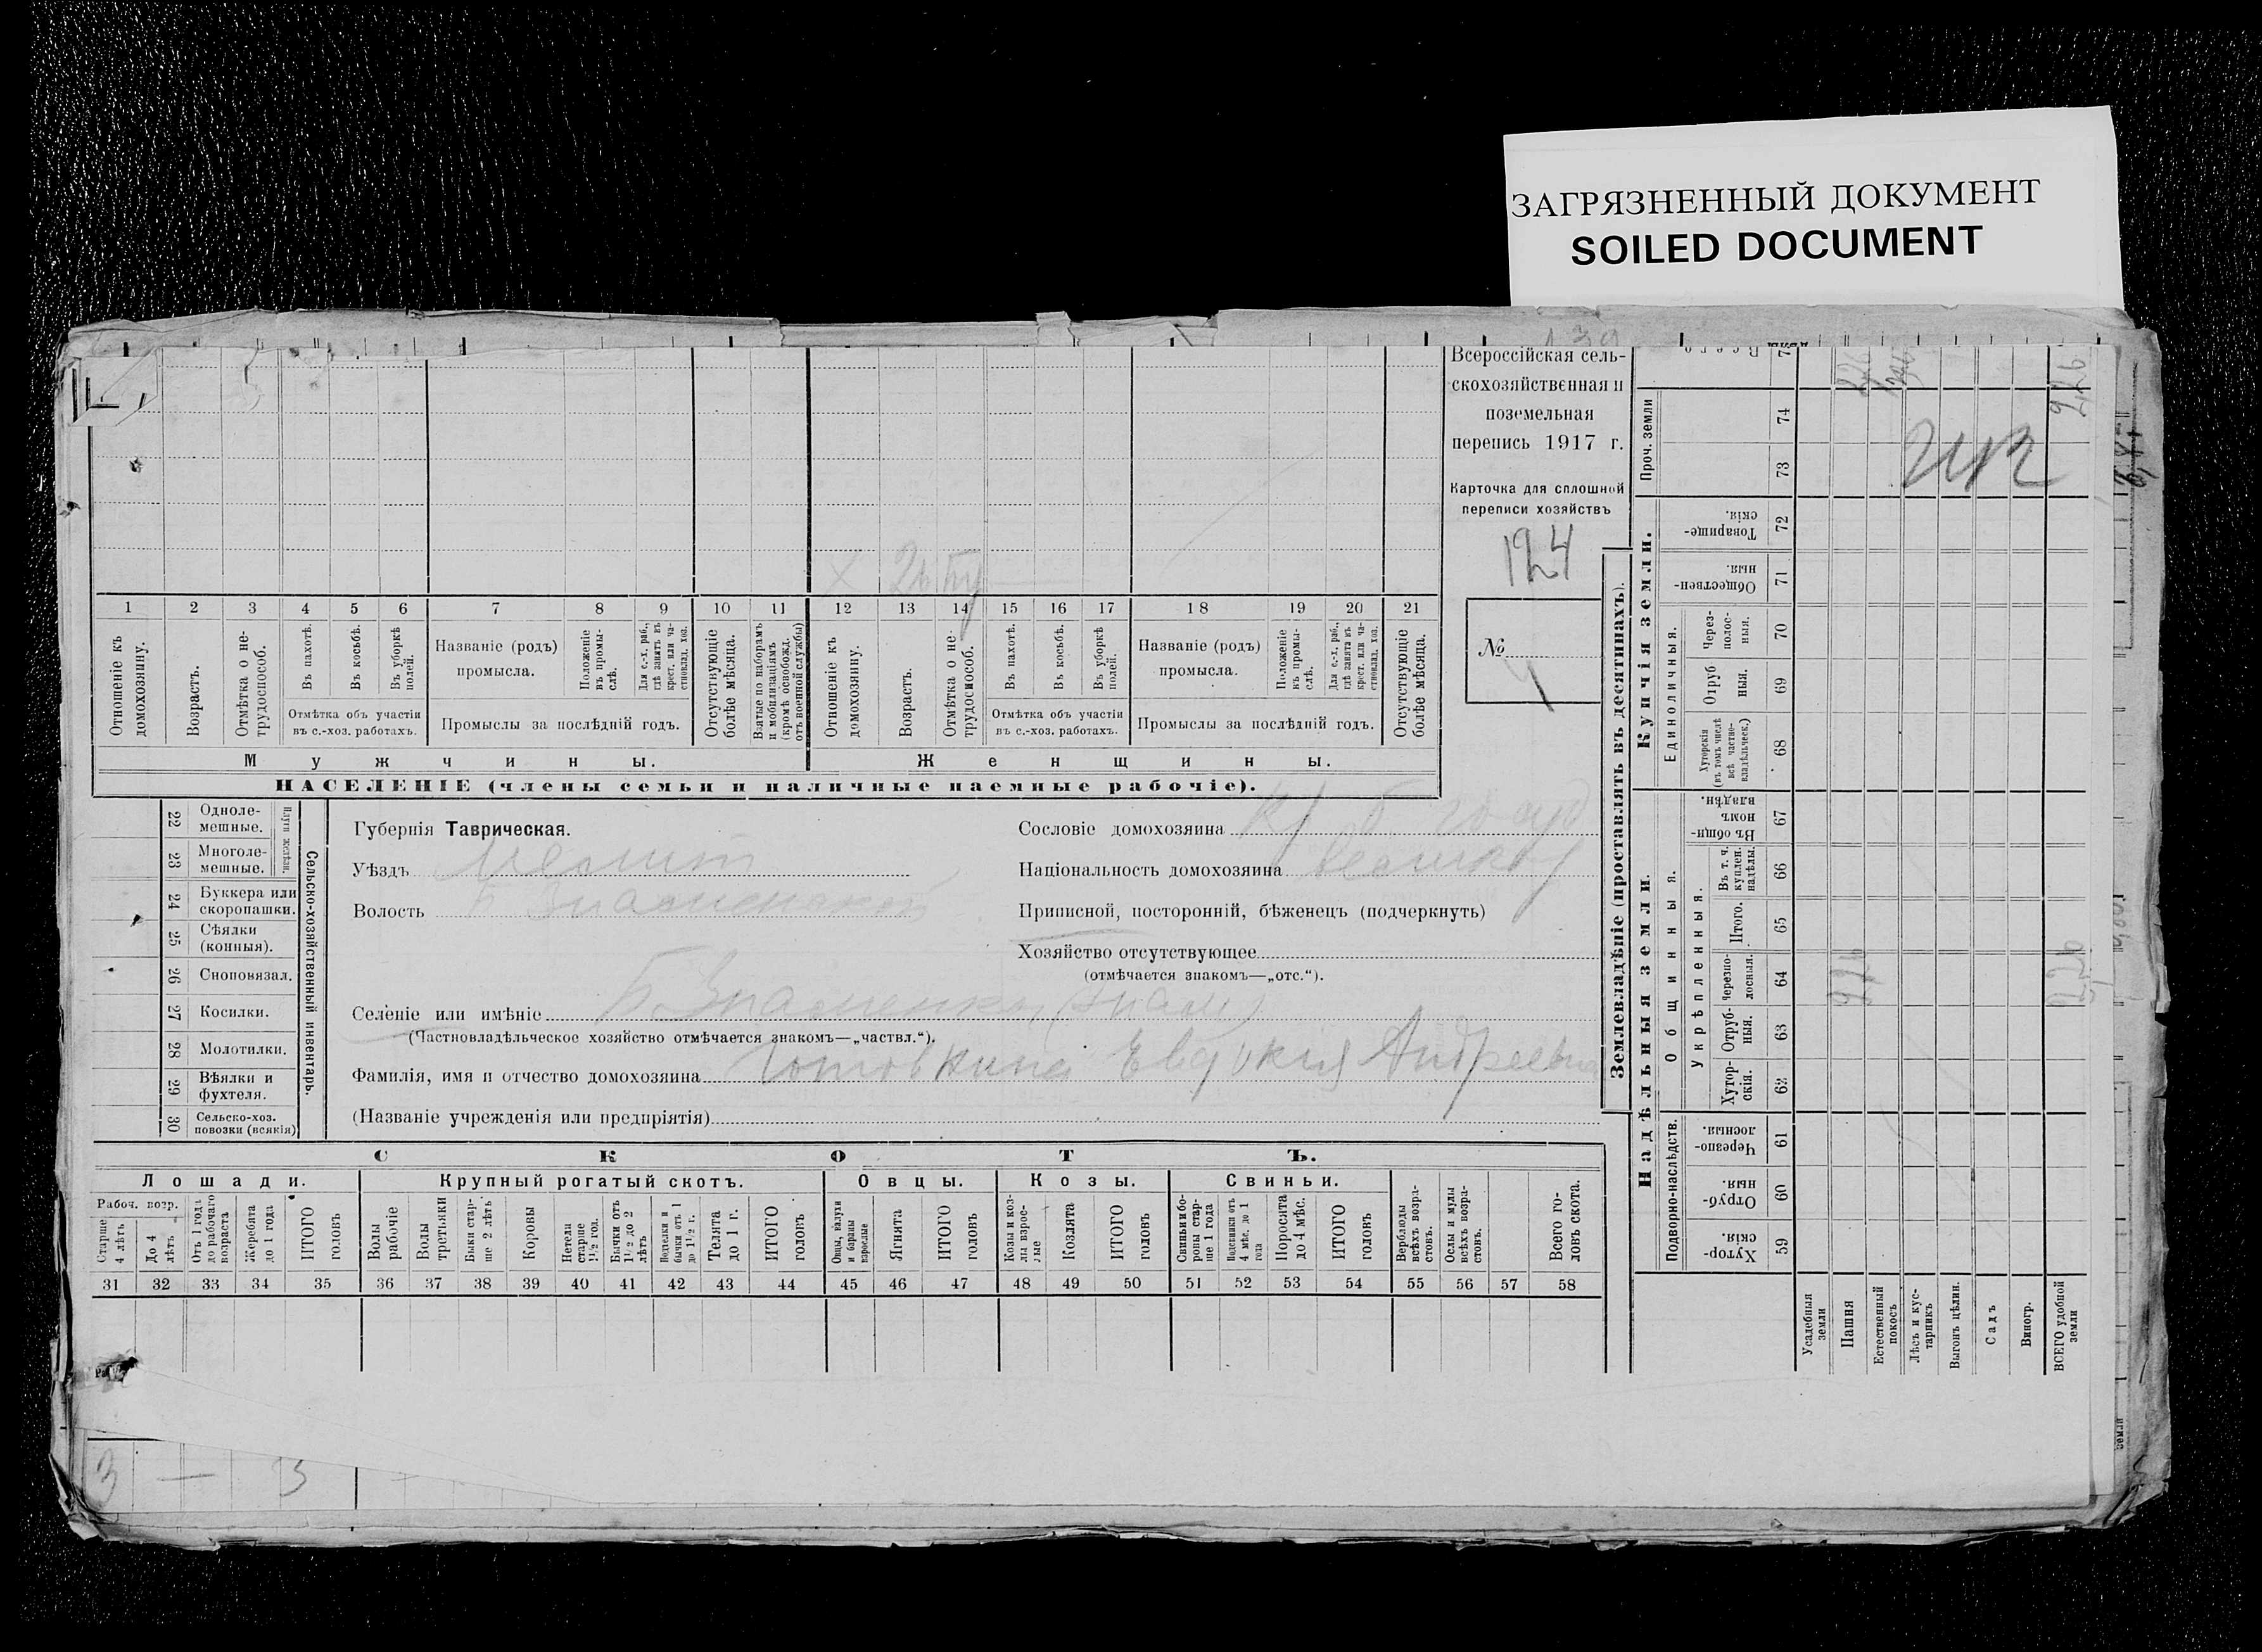 ЗАГРЯЗНЕННЫЙ ДОКУМЕНТ
SOILED DOCUMENT
Всероссійская сель-
скохозяйственная и
поземельная
перепись 1917 г.
Карточка для сплошной
переписи хозяйствъ
124
№
1 2 3 4 5 6 7 8 9 10 11 12 13 14 15 16 17 18 19 20 21
Отношеніе къ домохозяину.
Возрастъ.
Отмѣтка о не-трудоспособ.
Въ пахотѣ.
Въ косьбѣ.
Въ уборкѣ полей.
Отмѣтка объ участіи
въ с.-хоз. работахъ.
Названіе (родъ)
промысла.
Положеніе въ промы-слѣ.
Для с.-х. раб., гдѣ занятъ въ крест. или ча-стновлад. хоз.
Промыслы за послѣдній годъ.
Отсутствующіе болѣе мѣсяца.
Взятые по наборамъ и мобилизаціямъ (кромѣ освобожд. отъ военной службы)
Отношеніе къ домохозяину.
Возрастъ.
Отмѣтка о не-трудоспособ.
Въ пахотѣ.
Въ косьбѣ.
Въ уборкѣ полей.
Отмѣтка объ участіи
въ с.-хоз. работахъ.
Названіе (родъ)
промысла.
Положеніе въ промы-слѣ.
Для с.-х. раб., гдѣ занята въ крест. или ча-стновлад. хоз.
Промыслы за послѣдній годъ.
Отсутствующіе болѣе мѣсяца.
Мужчины.
Женщины.
НАСЕЛЕНІЕ (члены семьи и наличные наемные рабочіе).
22 Одноле-мешные.
23 Многоле-мешные.
24 Буккера или скоропашки.
25 Сѣялки (конныя).
26 Сноповязал.
27 Косилки.
28 Молотилки.
29 Вѣялки и фухтеля.
30 Сельско-хоз. повозки (всякія)
Сельско-хозяйственный инвентарь.
Губернія Таврическая.
Уѣздъ Мелит
Волость Б Знаменской
Селеніе или имѣніе Б. Знаменка
(Частновладѣльческое хозяйство отмѣчается знакомъ—„частвл.“).
Фамилія, имя и отчество домохозяина Евдокия Андреевна
(Названіе учрежденія или предпріятія)
Сословіе домохозяина
Національность домохозяина
Приписной, посторонній, бѣженецъ (подчеркнуть)
Хозяйство отсутствующее
(отмѣчается знакомъ—„отс.“).
СКОТЪ.
Лошади.
Крупный рогатый скотъ.
Овцы.
Козы.
Свиньи.
Рабоч. возр.
Старше 4 лѣтъ
До 4 лѣтъ
Отъ 1 года до рабочаго возраста
Жеребята до 1 года
ИТОГО головъ
Волы рабочіе
Волы третьяки
Быки стар-ше 2 лѣтъ
Коровы
Нетели старше 1½ год.
Бычки отъ 1½ до 2 лѣтъ
Подтелки и бычки отъ 1 до 1½ г.
Телята до 1 г.
ИТОГО головъ
Овцы, валухи и бараны взрослые
Ягнята
ИТОГО головъ
Козы и коз-лы взрос-лые
Козлята
ИТОГО головъ
Свиньи и бо-ровы стар-ше 1 года
Подсвинки отъ 4 мѣс. до 1 года
Поросята до 4 мѣс.
ИТОГО головъ
Верблюды всѣхъ возра-стовъ.
Ослы и мулы всѣхъ возра-стовъ.
Всего го-ловъ скота.
31 32 33 34 35 36 37 38 39 40 41 42 43 44 45 46 47 48 49 50 51 52 53 54 55 56 57 58
3 — 3
Землевладѣніе (проставлять въ десятинахъ).
Надѣльныя земли.
Купчія земли.
Проч. земли
Подворно-наслѣдств.
Общинныя.
Укрѣпленныя.
Единоличныя.
Хутор-скія. 59
Отруб-ныя. 60
Черезпо-лосныя. 61
Хутор-скія. 62
Отруб-ныя. 63
Черезпо-лосныя. 64
Итого. 65
Въ т. ч. куплен. надѣлы. 66
Въ общин-номъ владѣн. 67
Хуторскія (въ томъ числѣ всѣ частно-владѣльческ.) 68
Отруб ныя. 69
Через-полос-ныя. 70
Обществен-ныя. 71
Товарище-скія. 72
73
74
Всего
Усадебныя земли
Пашня
Естественный покосъ
Лѣсъ и кус-тарникъ
Выгонъ цѣлин.
Садъ
Виногр.
ВСЕГО удобной земли